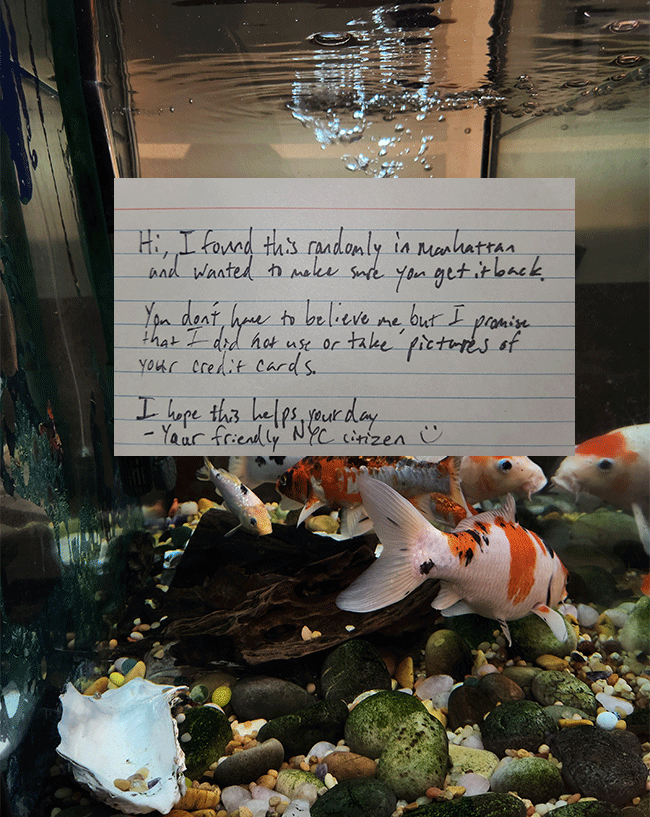 Hi, I found this randomly in manhattan
and wanted to make sure you get it back.
You don't have to believe me, but I promise
that I did not use or take pictures of
your credit cards.
I hope this helps your day
- Your friendly NYC citizen